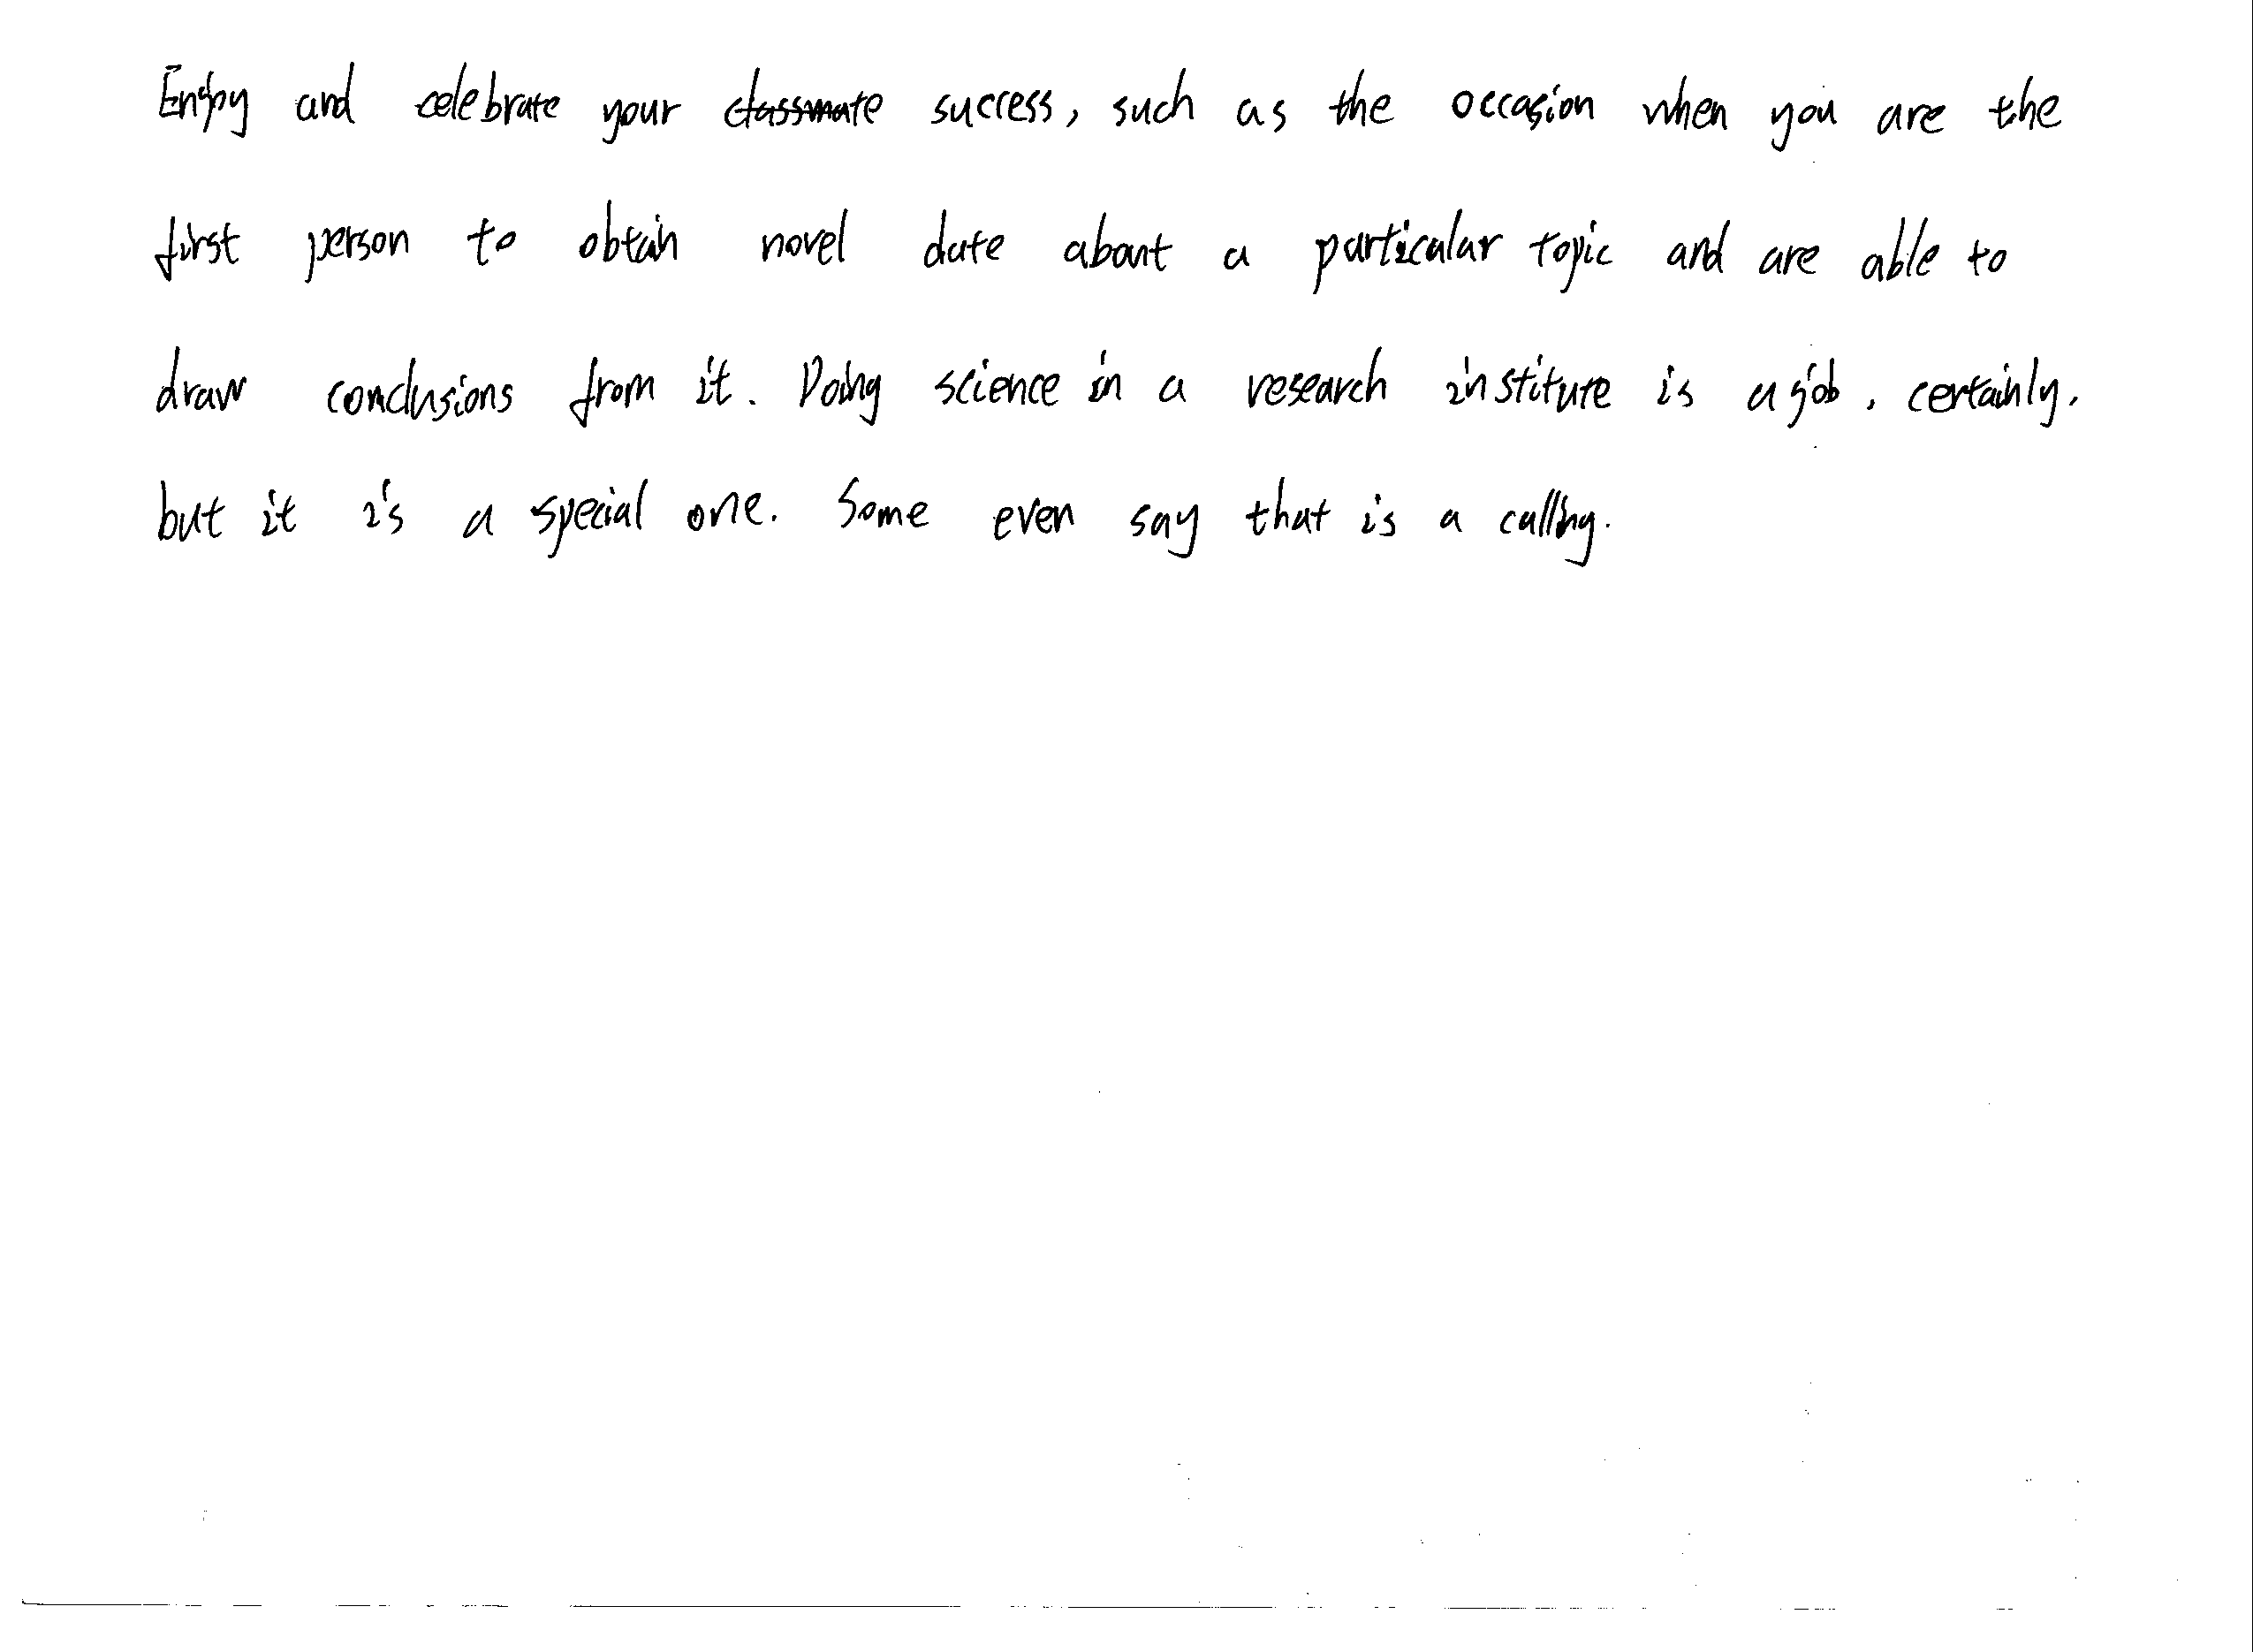 Enjoy and celebrate your classmate success, such as the occasion when you are the
first person to obtain novel date about a particular topic and are able to
draw conclusions from it. Doing science in a research institute is a job, certainly,
but it is a special one. Some even say that is a calling.